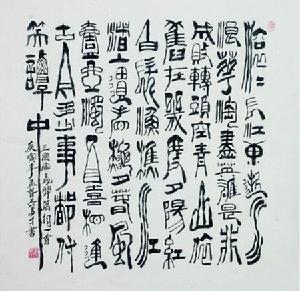 滚〻長江東逝水
浪華淘盡英雄是非
成敗轉頭空青山依
舊在幾度夕陽紅
白髮漁樵江
渚上慣看秋月春風
壹壺濁酒喜相逢
古今多少事都付
笑談中
三國演義開篇詞一首
庚寅年